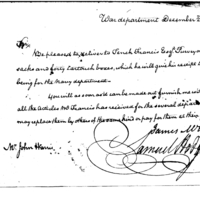 War department December
Sir
Be pleased to deliver to Tench Francis Esqr. Twenty
sacks and forty cartouch boxes, which he will give his receipt
being for the Navy department.
You will as soon as it can be made out furnish me with
all the articles Mr Francis has received for the several
may replace them by others of the same kind or pay for them at their
James
Samuel
Mr. John Harris